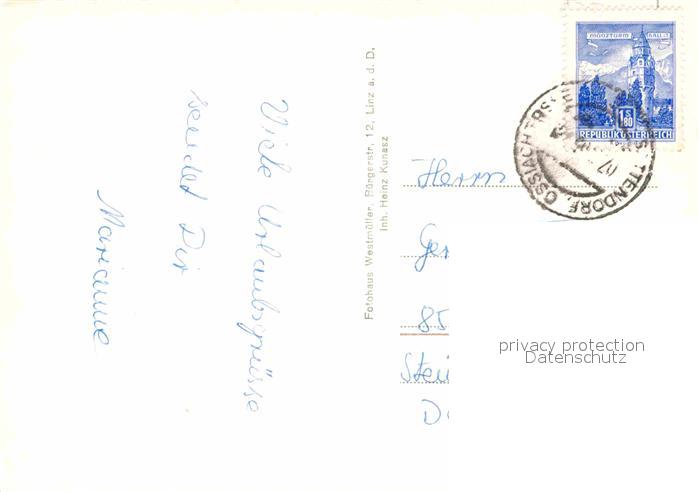 Viele Urlaubsgrüsse
sendet Dir
Marianne
Fotohaus Westmüller, Bürgerstr. 12, Linz a. d. D.
Inh. Heinz Kunasz
MÜNZTURM HALL i. T.
S 1.80
REPUBLIK ÖSTERREICH
Herrn
Ger
85
Stei
D
privacy protection
Datenschutz